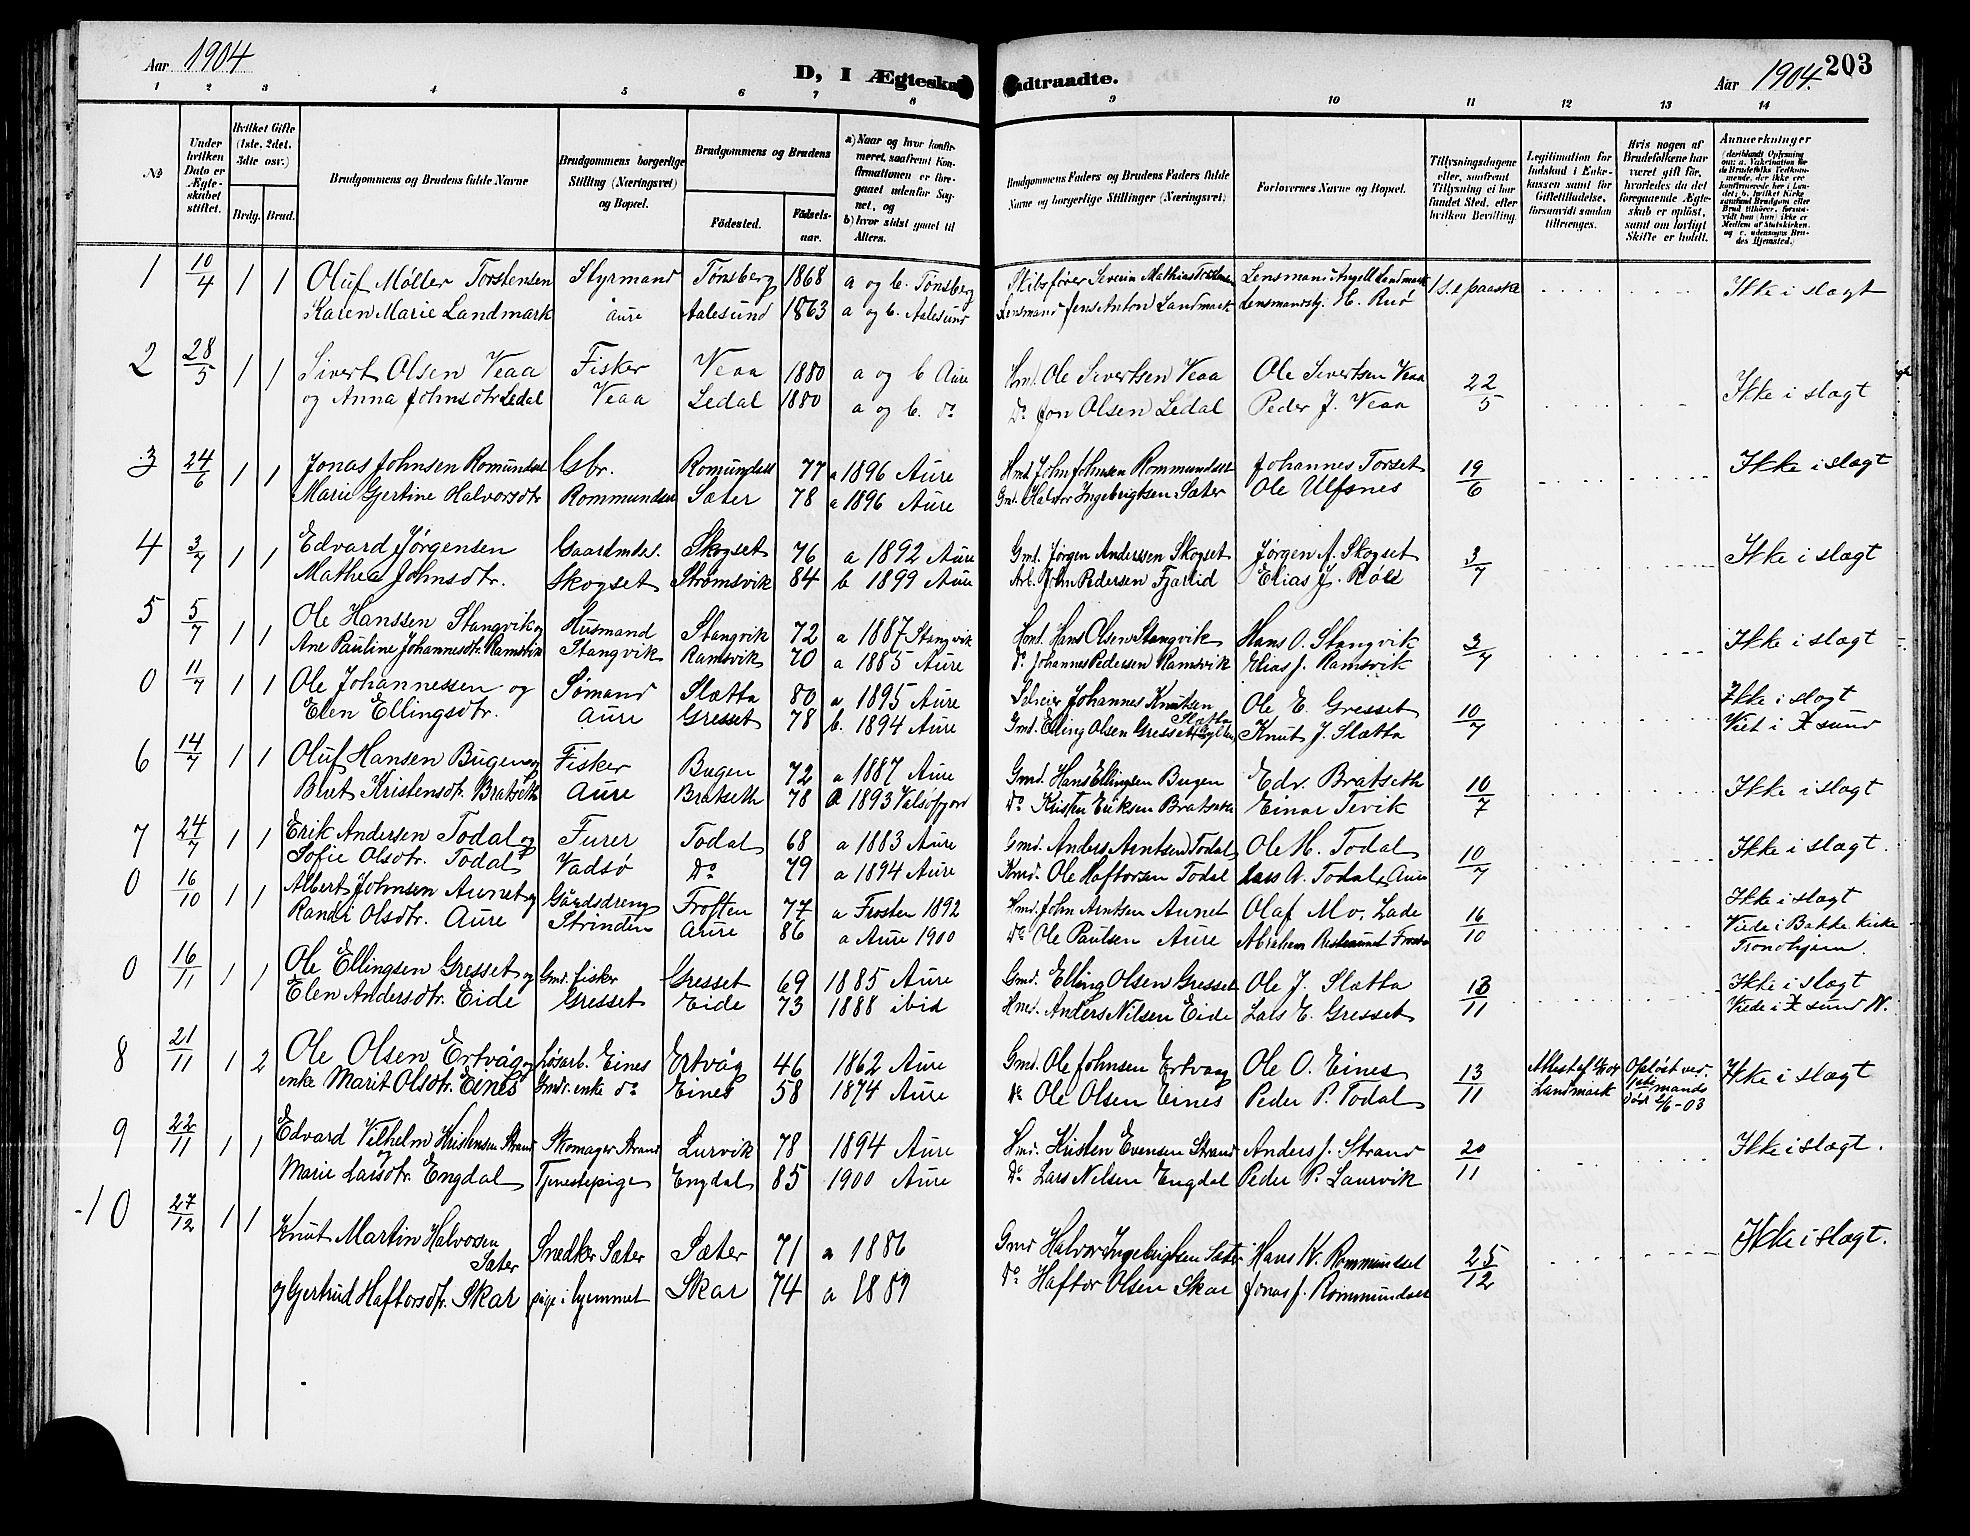 Aar 1904
D, I Ægteska
adtraadte.
Aar 1904.
203
1 2 3 4 5 6 7 8 9 10 11 12 13 14
№
Under hvilken Dato er Ægteskabet stiftet.
Hvilket Gifte (1ste, 2det, 3die osv.)
Brdg. Brud.
Brudgommens og Brudens fulde Navne
Brudgommens borgerlige Stilling (Næringsvei) og Bopæl.
Brudgommens og Brudens
Fødested. Fødselsaar.
a) Naar og hvor konfirmeret, saafremt Konfirmationen er foregaaet udenfor Sognet, og
b) hvor sidst gaaet til Alters.
Brudgommens Faders og Brudens Faders fulde Navne og borgerlige Stillinger (Næringsvei).
Forlovernes Navne og Bopæl.
Tillysningsdagene eller, saafremt Tillysning ei har fundet Sted, efter hvilken Bevilling.
Legitimation for Indskud i Enkekassen samt for Giftetilladelse, forsaavidt saadan tiltrænges.
Hvis nogen af Brudefolkene har været gift før, hvorledes da det foregaaende Ægteskab er opløst, samt om lovligt Skifte er holdt.
Anmerkninger
1 10/4 1 1 Oluf Møller Torstensen Styrmand Tønsberg 1868 a og b. Tønsberg Skibsfører Severin Mathias Torstensen Lensmand Angell Landmark 1 s. e paaske Ikke i slægt
Karen Marie Landmark Aure Aalesund 1863 a og b. Aalesund Lensmand Jens Anton Landmark Lensmandsbj. H. Ruø
2 28/5 1 1 Sivert Olsen Veaa Fisker Veaa 1880 a og b Aure Hmd. Ole Sivertsen Veaa Ole Sivertsen Veaa 22/5 Ikke i slægt
og Anna Johnsdtr Ledal Veaa Ledal 1880 a og b. do Do Jon Olsen Ledal Peder J. Veaa
3 24/6 1 1 Jonas Johnsen Romundset Gbr. Romundset 77 a 1896 Aure Hmd. John Johnsen Rommundset Johannes Torset 19/6 Ikke i slægt
Marie Gjertine Halvorsdtr Rommundset Sæter 78 a 1896 Aure Gmd. Halvor Ingebrigtsen Sæter Ole Ulfsnes
4 3/7 1 1 Edvard Jørgensen Gaardmdss. Skogset 76 a 1892 Aure Gmd. Jørgen Anderssen Skogset Jørgen A. Skogset 3/7 Ikke i slægt
Mathea Johnsdtr. Skogset Strømsvik 84 b 1899 Aure Arb. John Pedersen Fjærlid Elias J. Røen
5 5/7 1 1 Ole Hanssen Stangvik og Husmand Stangvik 72 a 1887 Stangvik Hmd. Hans Olsen Stangvik Hans O. Stangvik 3/7 Ikke i slægt
Ane Pauline Johannesdtr. Ramsvik Stangvik Ramsvik 70 a 1885 Aure Do Johannes Pedersen Ramsvik Elias J. Ramsvik
0 11/7 1 1 Ole Johannessen og Sømand Slætta 80 a 1895 Aure Johannes Knutsen Slætta Ole E. Gresset 10/7 Ikke i slægt
Elen Ellingsdtr. Aure Gresset 78 b. 1894 Aure Gmd. Elling Olsen Gresset Knut J. Slætta Viet i X sund
6 14/7 1 1 Oluf Hansen Bugen og Fisker Bugen 72 a 1887 Aure Gmd. Hans Ellingsen Bugen Edv. Bratseth 10/7 Ikke i slægt
Beret Kristensdtr. Bratseth Aure Bratseth 78 a 1893 Valsøfjord Do Kristen Eriksen Bratseth Einar Tevik
7 24/7 1 1 Erik Andersen Todal og Furer Todal 68 a 1883 Aure Gmd. Anders Arntsen Todal Ole H. Todal 10/7 Ikke i slægt.
Sofie Olsdtr. Todal Vadsø Do 79 a 1894 Aure Kmd. Ole Haftorsen Todal Lars A. Todal, Aure
0 16/10 1 1 Albert Johnsen Aunet og Gårdsdreng Frosten 77 a Frosten 1892 Hmd. John Arntsen Aunet Olaf Mo. Lade 16/10 Ikke i slægt
Randi Olsdtr. Aure Strinden Aure 86 a Aure 1900 Do Ole Paulsen Aure Abraham Frosta Viede i Bakke Kirke Trondhjem.
0 16/11 1 1 Ole Ellingsen Gresset og Gmd. fisker Gresset 69 1885 Aure Gmd. Elling Olsen Gresset Ole J. Slætta 13/11 Ikke i slægt
Elen Andersdtr. Eide Gresset Eide 73 1888 ibid Hmd. Anders Nilsen Eide Lars E. Gresset Viede i X sund N.
8 21/11 1 2 Ole Olsen Ertvåg og Løsarb. Eines Ertvåg 46 1862 Aure Gmd. Ole Johnsen Ertvaag Ole O. Eines 13/11 Attest af Landmark Opløst ved 1ste mands død 2/6-03 Ikke i slægt
enke Marit Olsdtr. Eines Gmdr. enke do Eines 58 1874 Aure Do Ole Olsen Eines Peder P. Todal
9 22/11 1 1 Edvard Vilhelm Kristensen Strand og Skomager Strand Lurvik 78 1894 Aure Hmd. Kristen Evensen Strand Anders J. Strand 20/11 Ikke i slægt.
Marie Larsdtr. Engdal Tjenestepige Engdal 85 1900 Aure Do Lars Nilsen Engdal Peder P. Laurvik
10 27/12 1 1 Knut Martin Halvorsen Sæter Snedker Sæter Sæter 71 a 1886 Gmd Halvor Ingebrigtsen Sæter Hans K. Rommundset 25/12 Ikke i slægt.
og Gjertrud Haftorsdtr. Skar pige i hjemmet Skar 74 a 1889 Do Haftor Olsen Skar Jonas J. Rommundset